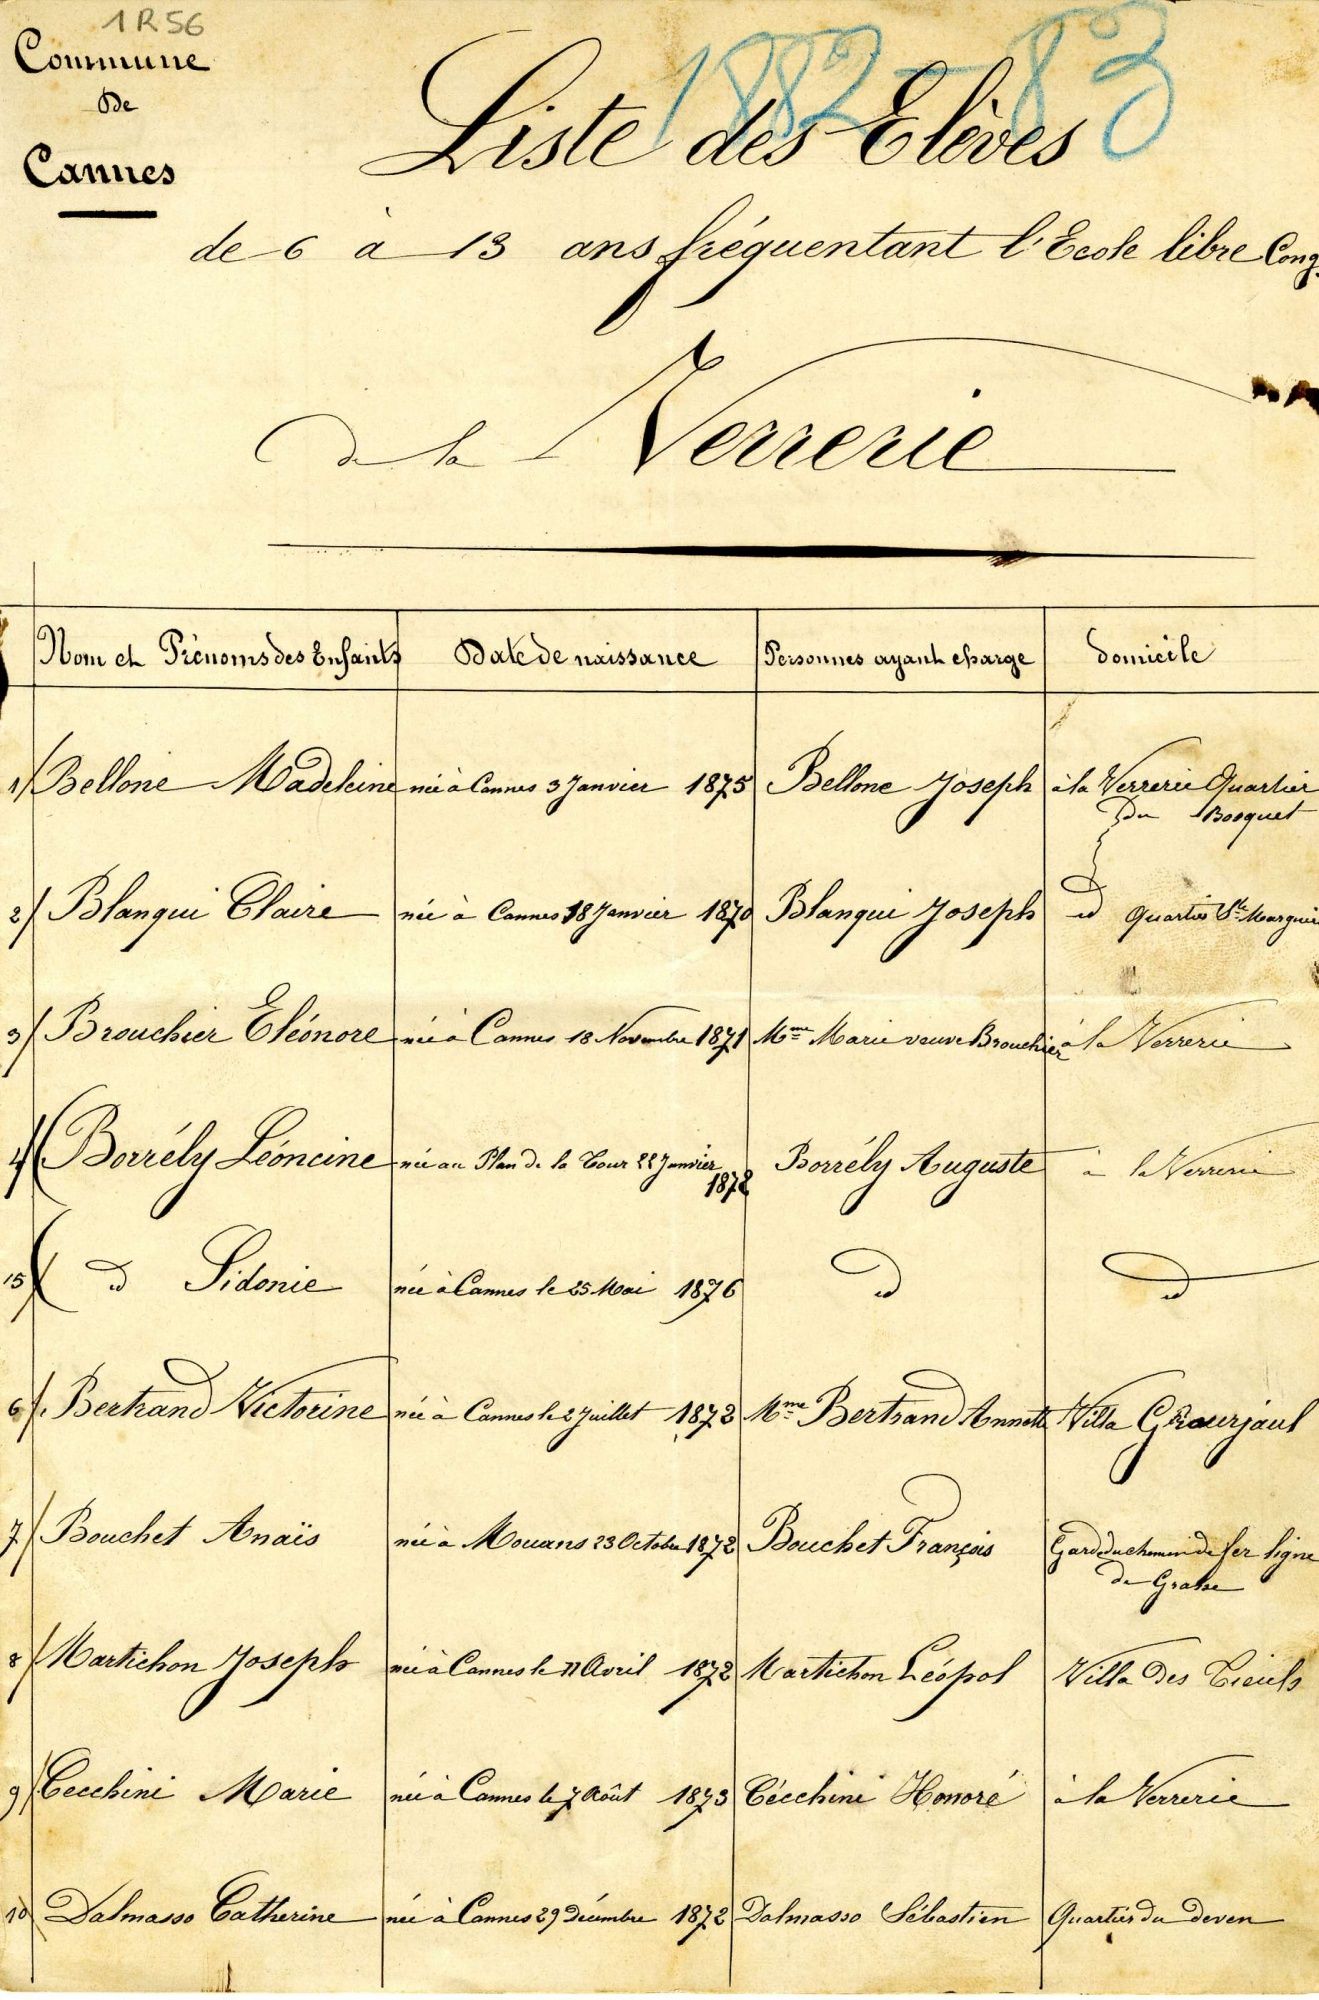 1 R 56
Commune
de
Cannes
1882-83
Liste des Elèves
de 6 à 13 ans fréquentant l'Ecole libre Cong.
de la Verrerie
Nom et Prénoms des Enfants Date de naissance Personnes ayant charge domicile
1/ Bellone Madeleine née à Cannes 3 Janvier 1875 Bellone Joseph à la Verrerie Quartier
du Bosquet
2/ Blanqui Claire née à Cannes 18 Janvier 1870 Blanqui Joseph d Quartier Ste Marguie
3/ Brouchier Eléonore née à Cannes 18 Novembre 1871 Mme Marie veuve Brouchier à la Verrerie
4/ Borrély Léoncine née au Plan de la Tour 22 Janvier
1872 Borrély Auguste à la Verrerie
5/ d Sidonie née à Cannes le 25 Mai 1876 d d
6/. Bertrand Victorine née à Cannes le 2 Juillet 1872 Mme Bertrand Annette Villa
7/ Bouchet Anaïs née à Mouans 23 Octobre 1872 Bouchet François Garde du chemin de fer ligne
de Grasse
8/ Martichon Joseph née à Cannes le 11 Avril 1872 Martichon Léopol Villa des Tieuls
9/ Cecchini Marie née à Cannes le 7 Août 1873 Cécchini Honoré à la Verrerie
10/ Dalmasso Catherine née à Cannes 29 Décembre 1872 Dalmasso Sébastien Quartier du deven